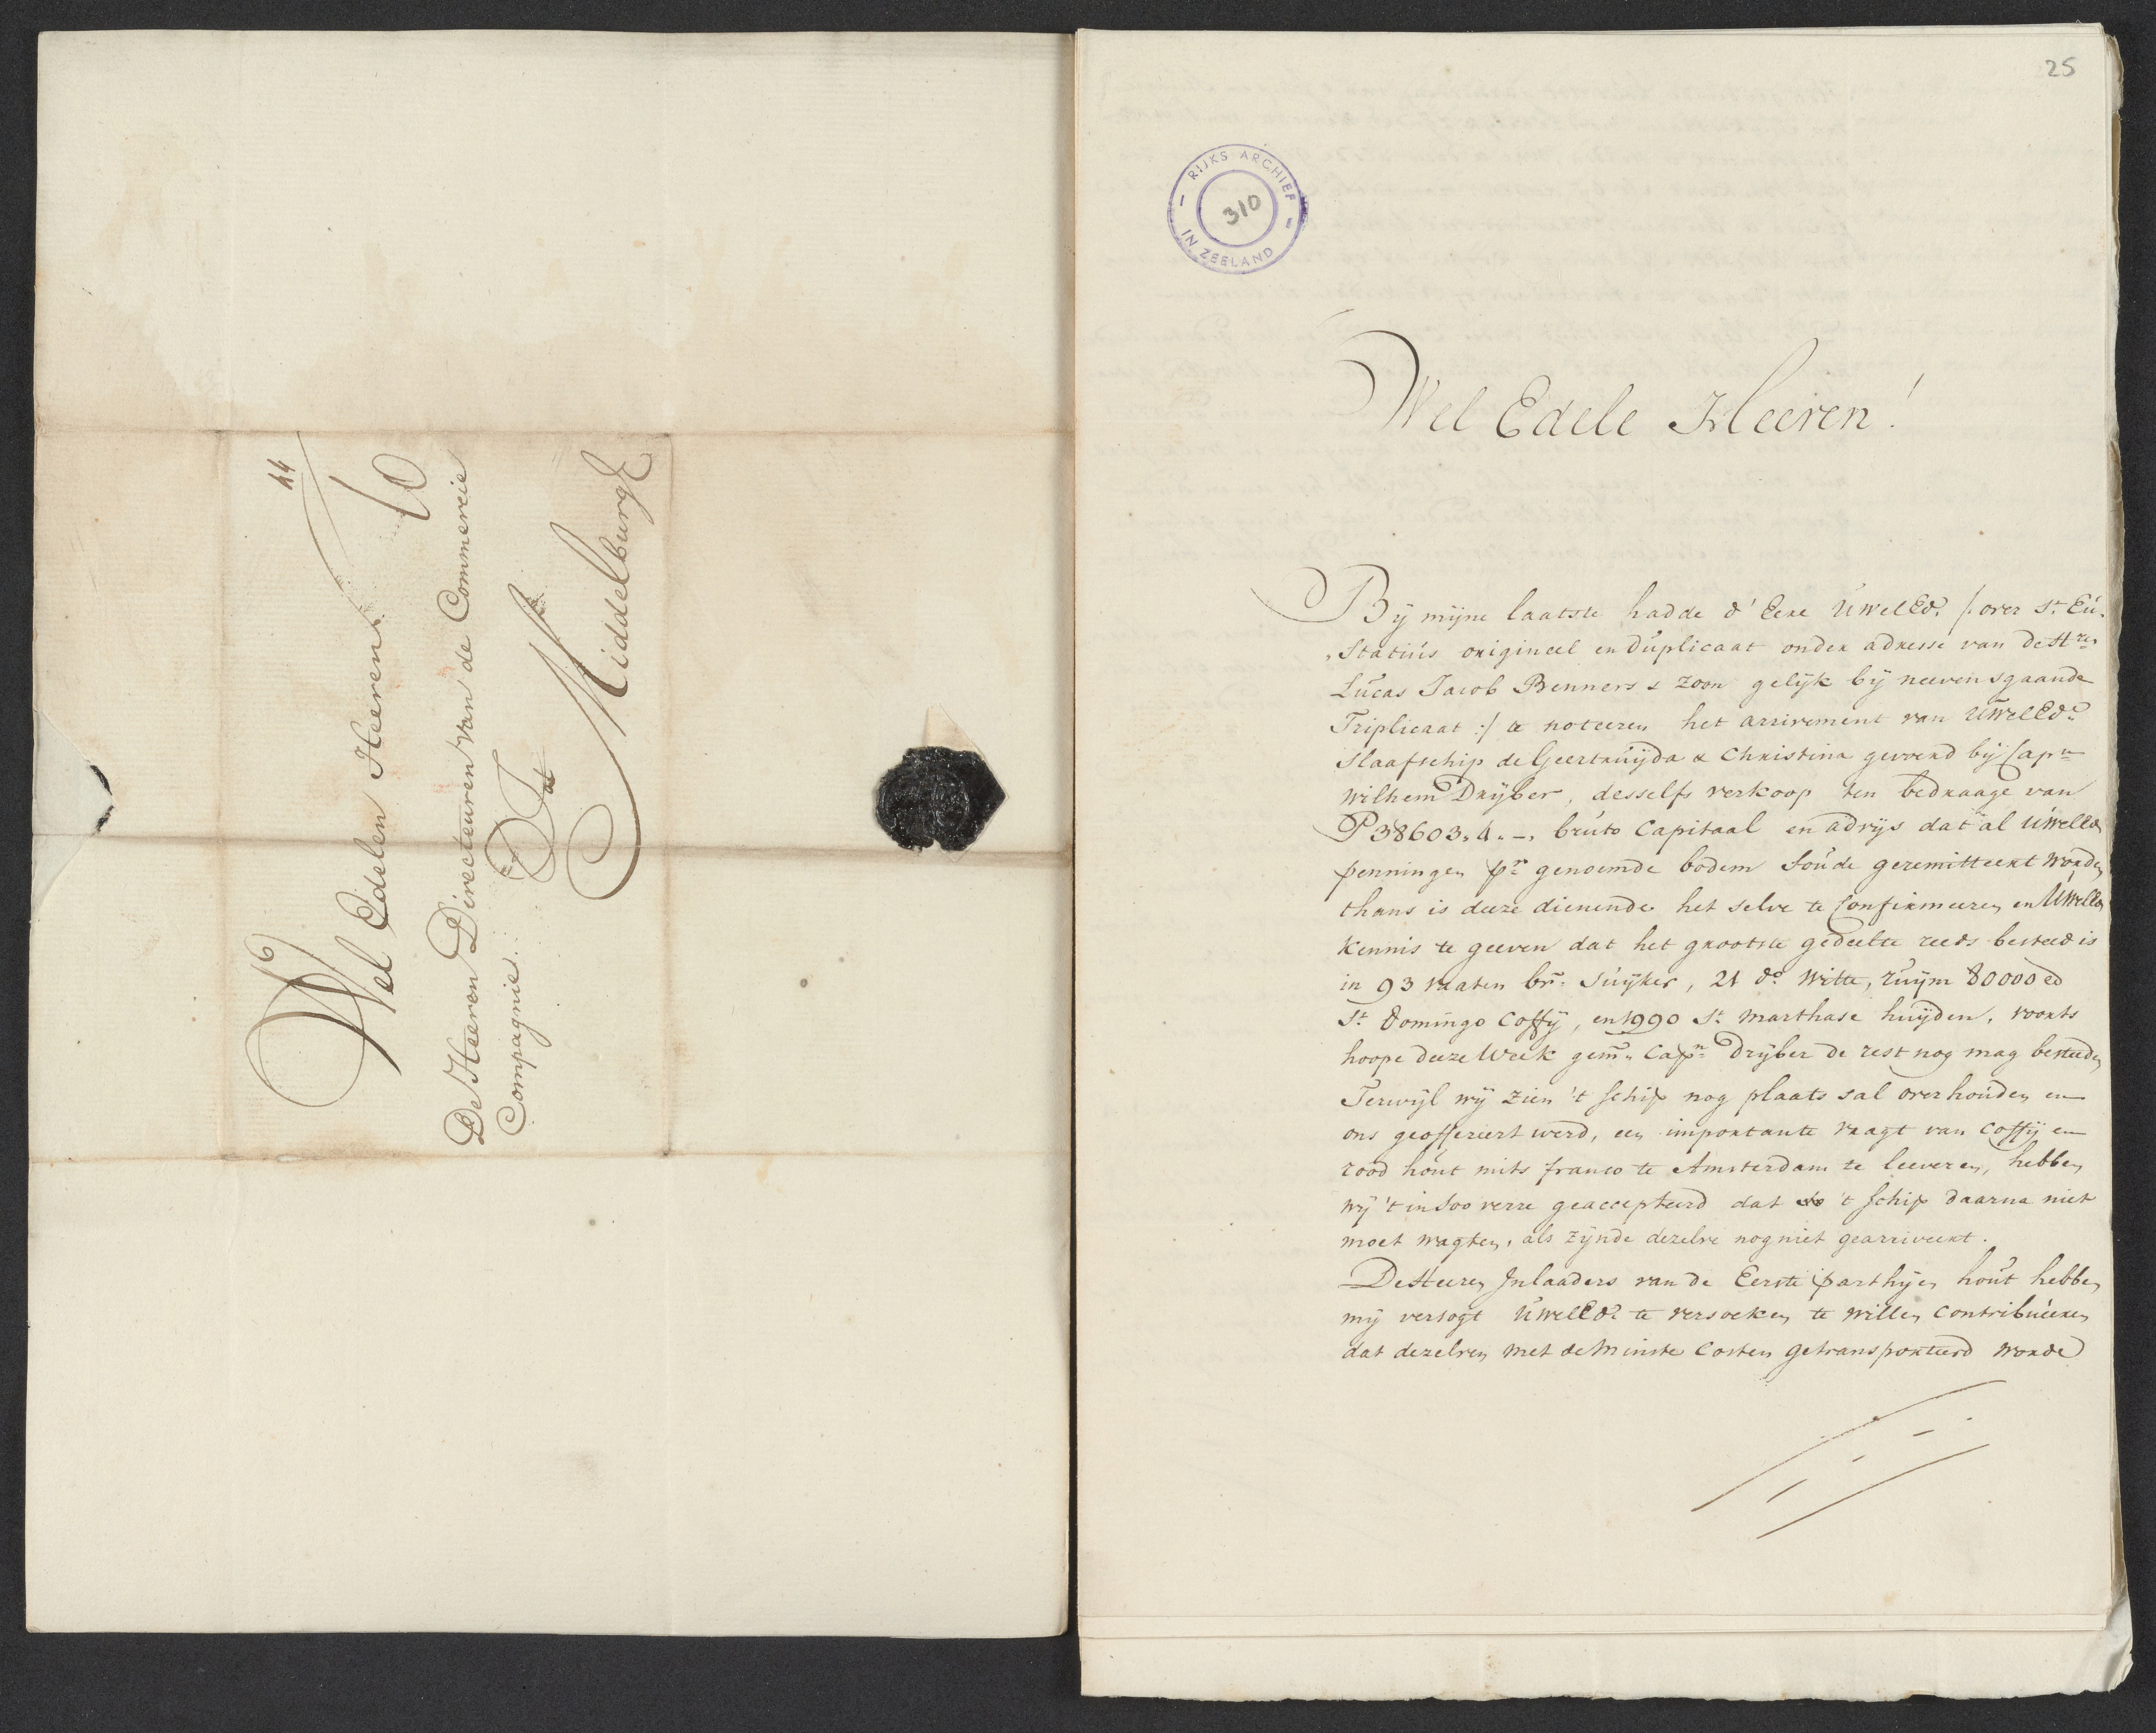 44
10
Wel Edelen Heeren
De Heeren Directeuren van de Commercie
Compagnie.
Tot
Middelburg
25
RIJKS ARCHIEF
310
IN ZEELAND
Wel Edele Heeren!
Bÿ mijne laatste hadde d' Eere UWelEd. /: over St. Eu-
„statius origineel en duplicaat onder adresse van de Hren
Lucas Jacob Benners & zoon gelijk bÿ neevensgaande
Triplicaat :/ te noteeren het arrivement van UWelEd.
Slaafschip de Geertruijda & Christina gevoerd bÿ Capn
Wilhem Drijber, desselfs verkoop ten bedraage van
P 38603. 4. –. bruto Capitaal en advijs dat al UWelEd
penningen pr genoemde bodem Soude geremitteert worden
thans is deeze dienende het selve te Confirmeeren en UWelEd
kennis te geeven dat het grootste gedeelte reeds besteed is
in 93 vaaten br. Suijker, 21 do. Witte, ruijm 80000 ℔
St. Domingo Coffÿ, en 1990 St. Marthase huijden, voorts
hoope deeze Week gem. Capn. Drijber de rest nog mag besteeden
Terwijl wÿ zien 't schip nog plaats sal overhouden en
ons geoffereert werd, een importante vragt van Coffÿ en
rood hout mits franco te Amsterdam te leeveren, hebben
wÿ 't in Soo verre geaccepteerd dat 't schip daarna niet
moet wagten, als zijnde dezelve nog niet gearriveert.
De Heeren Inlaaders van de Eerste parthijen hout hebben
mÿ versogt UWelEd. te versoeken te willen Contribueeren
dat dezelven met de Minste Costen getransporteerd worde